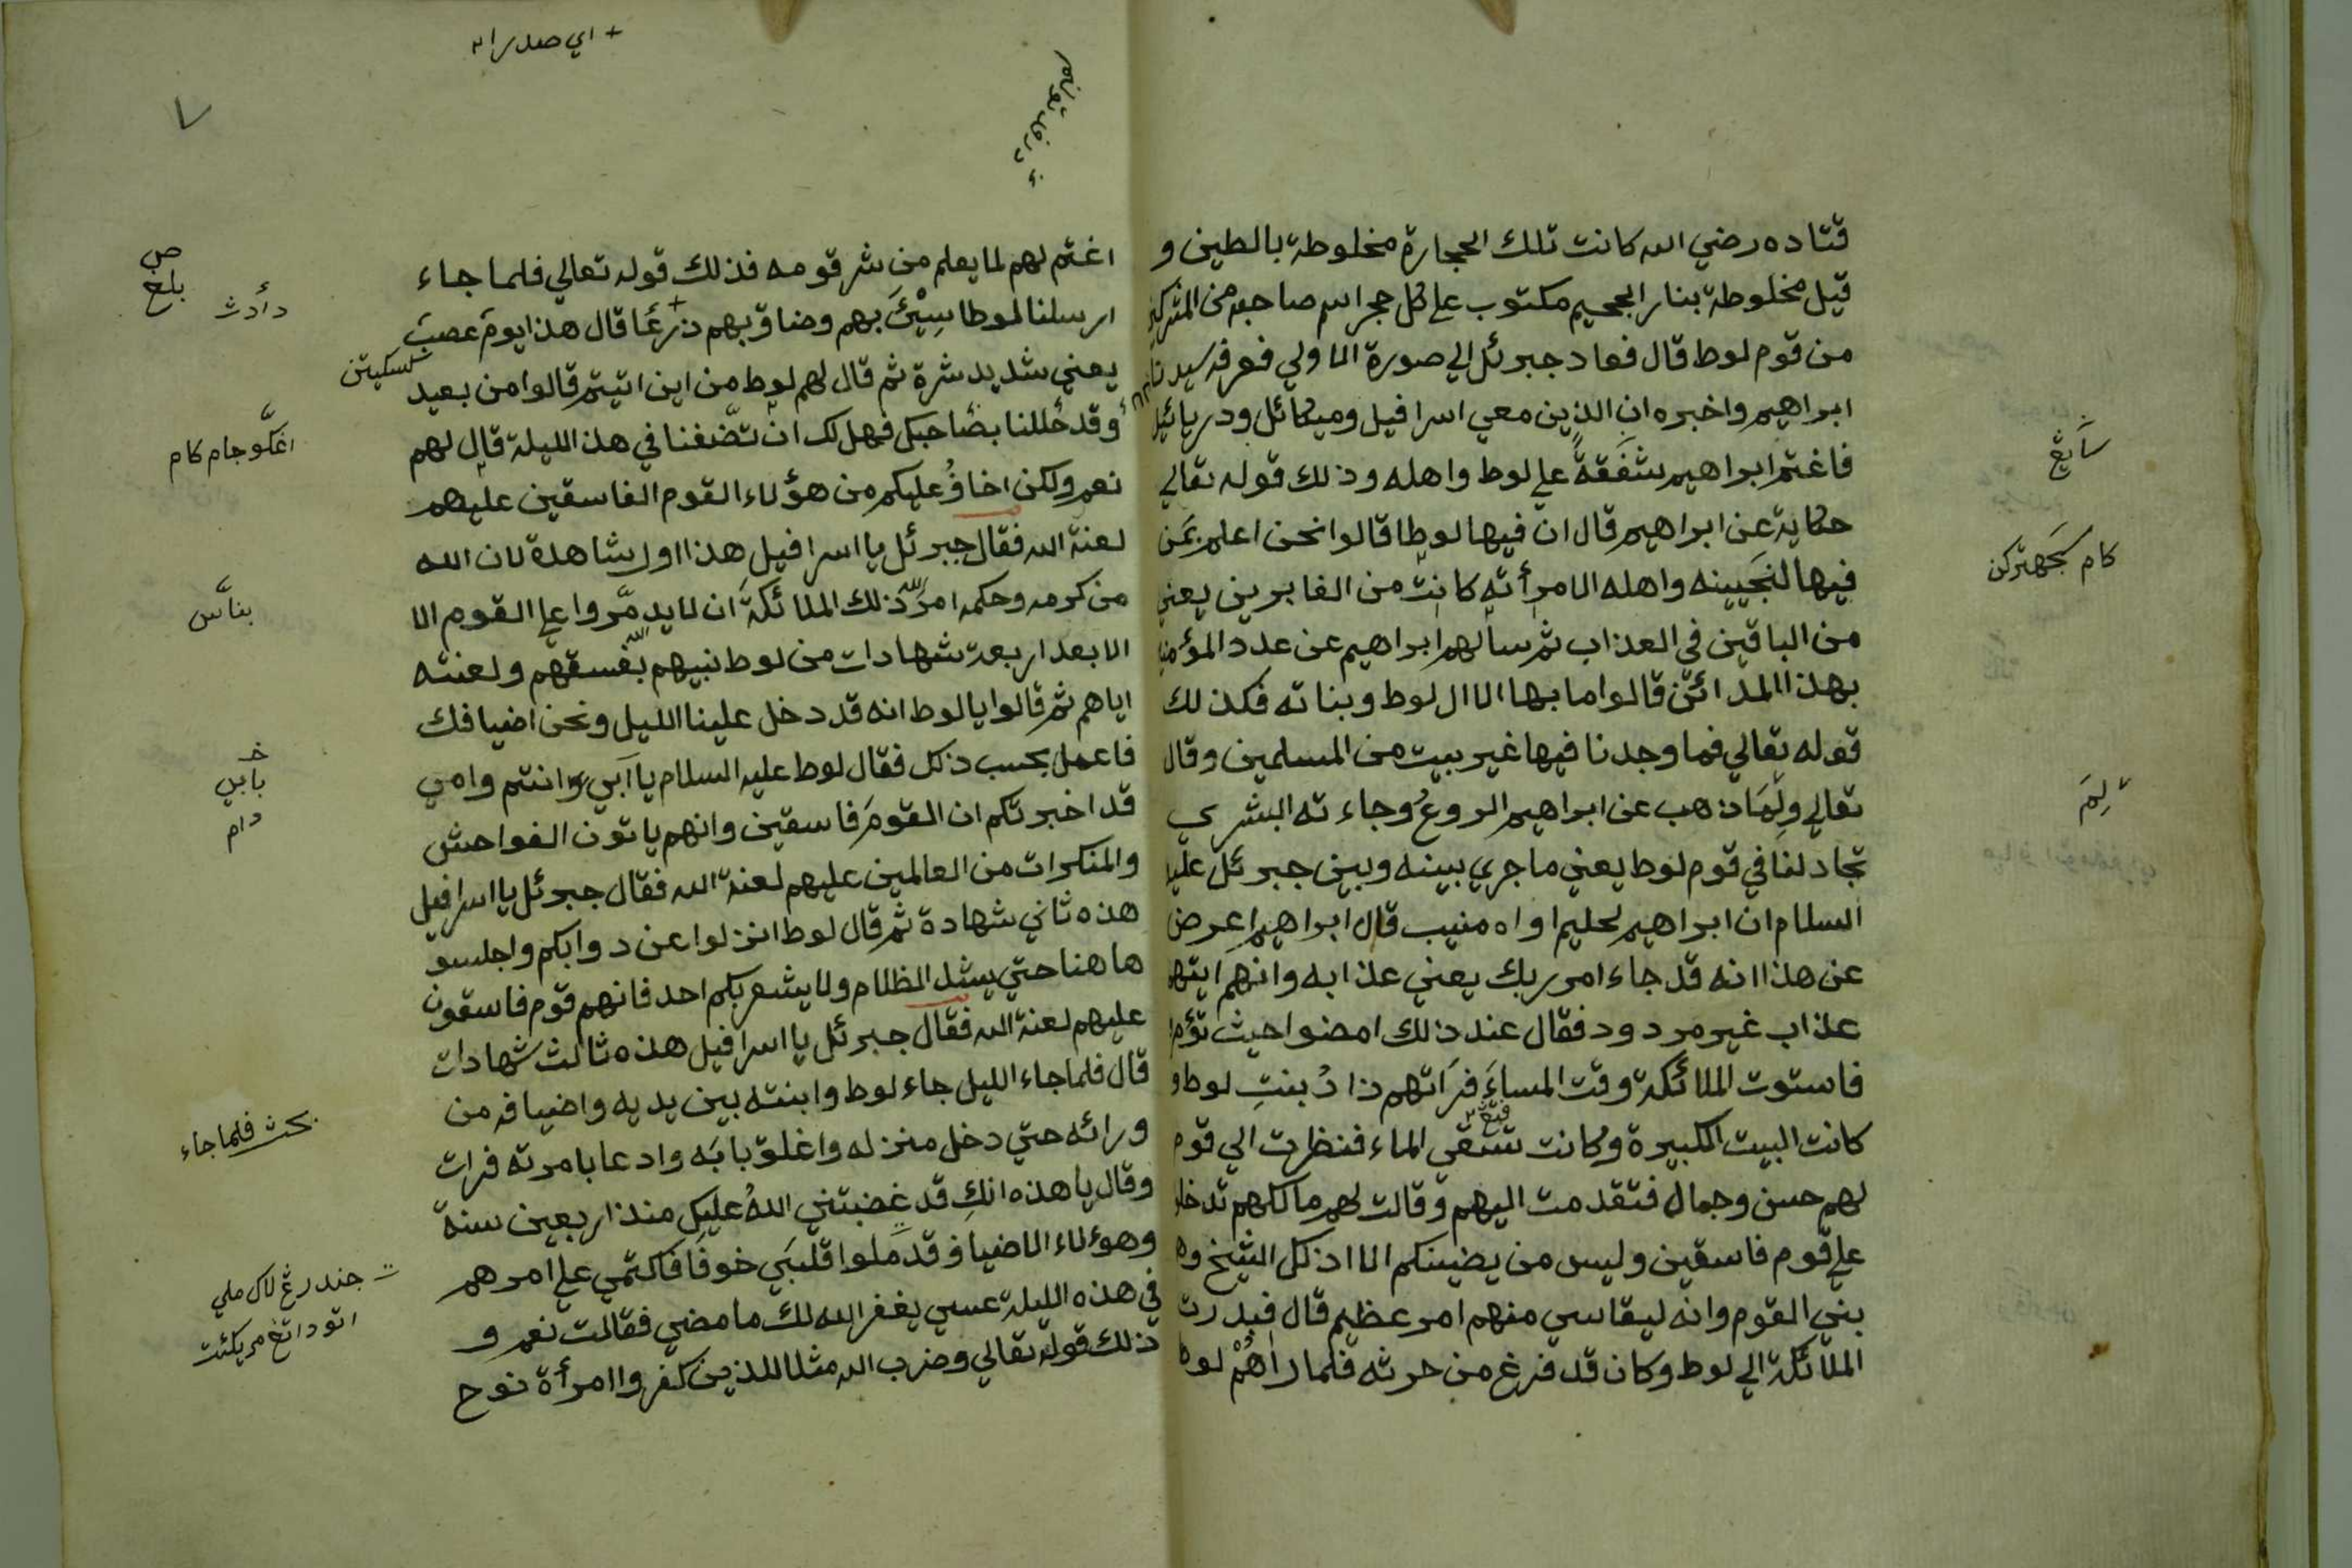 قتاده رضي الله كانت تلك الحجارة مخلوطة بالطين و
قيل مخلوطة بنار الجحيم مكتوب علي كل حجر اسم صاحبه من المشركين
من قوم لوط قال فعاد جبرئل الي صورة الاولي فعرفه سيدنا
ابراهيم واخبره ان الذين معي اسرافيل وميكائل ودريائيل
فاغتم ابراهيم شَفَقَةً علي لوط واهله وذلك قوله تعالي
حكاية عن ابراهيم قال ان فيها لوطا قالوا نحن اعلم بمَن
فيها لنجَيينه واهله الا مرأته كانت من الغابرين يعني
من الباقين في العذاب ثم سألهم ابراهيم عن عدد المؤمنين
بهذا المدائن قالوا ما بها الا ال لوط وبناته فكذلك
قوله تعالي فما وجدنا فيها غير بيت من المسلمين وقال
تعالي ولِمَا ذهب عن ابراهيم الروعُ وجاءته البشري
تجادلنا في قوم لوط يعني ما جري بينه وبين جبرئل عليه
السلام ان ابراهيم لحليم اواه منيب قال ابراهيم اعرض
عن هذا انه قد جاء امر ربك يعني عذابه وانهم ايتهم
عذاب غير مردود فقال عند ذلك امضوا حيث تؤمر
فاستوت الملائكة وقت المساءَ فرَاتهم بنتِ لوط و
كانت البيت الكبيرة وكانت تسقي الماء فنظرت الي قوم
لهم حسن وجمال فتقدمت اليهم وقالت لهم مالكم تدخلو
علي قوم فاسقين وليس من يضيىنكم الا اذلكل الشيخ وه
بني القوم وانه ليقاسي منهم امر عظيم قال فبدرت
الملائكة الي لوط وكان قد فرغ من حرثه فلما راٰهُمْ لوط
سَايڠ
كام
لِمَ
+ اي صدرا ٣
٧
اغتم لهم لما يعلم من شر قومه فذلك قوله تعالي فلما جاء
ارسلنا لوطا سِيْئَ بهم وضاق بهم ذرعًا قال هذا يوم عصب
يعني شديد شرة ثم قال لهم لوط من اين اتيتم قالوا من بعيد
وقد حُللنا بصَاحبكل فهل لك ان تضّفنا في هذ الليلة قال لهم
نعم ولكن اخافُ عليكم من هؤلاء القوم الفاسقين عليهم
لعنة الله فقال جبرئل يا اسرافيل هذا اول شاهدة لان الله
من كرمه وحكمه امر ذلك الملائكةَ ان لا يدمّروا علي القوم الا
الا بعد اربعة شهادات من لوط نبيهم بفسقهم ولعنته
اياهم ثم قالوا يا لوط انه قد دخل علينا الليل ونحن اضيافك
فاعمل بحسب ذلكل فقال لوط عليه السلام يا آبي وانتم وامي
قد اخبرتكم ان القومَ فاسقين وانهم ياتون الفواحش
والمنكرات من العالمين عليهم لعنة الله فقال جبرئل يا اسرافيل
هذه ثاني شهادة ثم قال لوط انزلوا عن دوابكم واجلسو
ها هنا حتي يشتد الظلام ولا يشعر بكم احد فانهم قوم فاسقون
عليهم لعنة الله فقال جبرئل يا اسرافيل هذه ثالث شهادات
قال فلما جاء الليل جاء لوط وابنته بين يديه واضيافه من
ورائه حتي دخل منزله واغلق بابَه وادعا بامرته فرات
وقال يا هذه انكِ قد غضبتني اللهُ عليكِ منذ اربعين سنة
وهؤلاء الاضياف قد ملوا قلبَي خوفًا فاكتمي علي امرهم
في هذه الليلة عسي يغفر الله لك ما مضي فقالت نعم و
ذلك قوله تعالي وضرب الله مثلا للذين كفروا امرأة نوح
ص
بلغ
دأدث
اڠكو جام كام
بناس
خ
بابي
دام
بحث فلما جاء